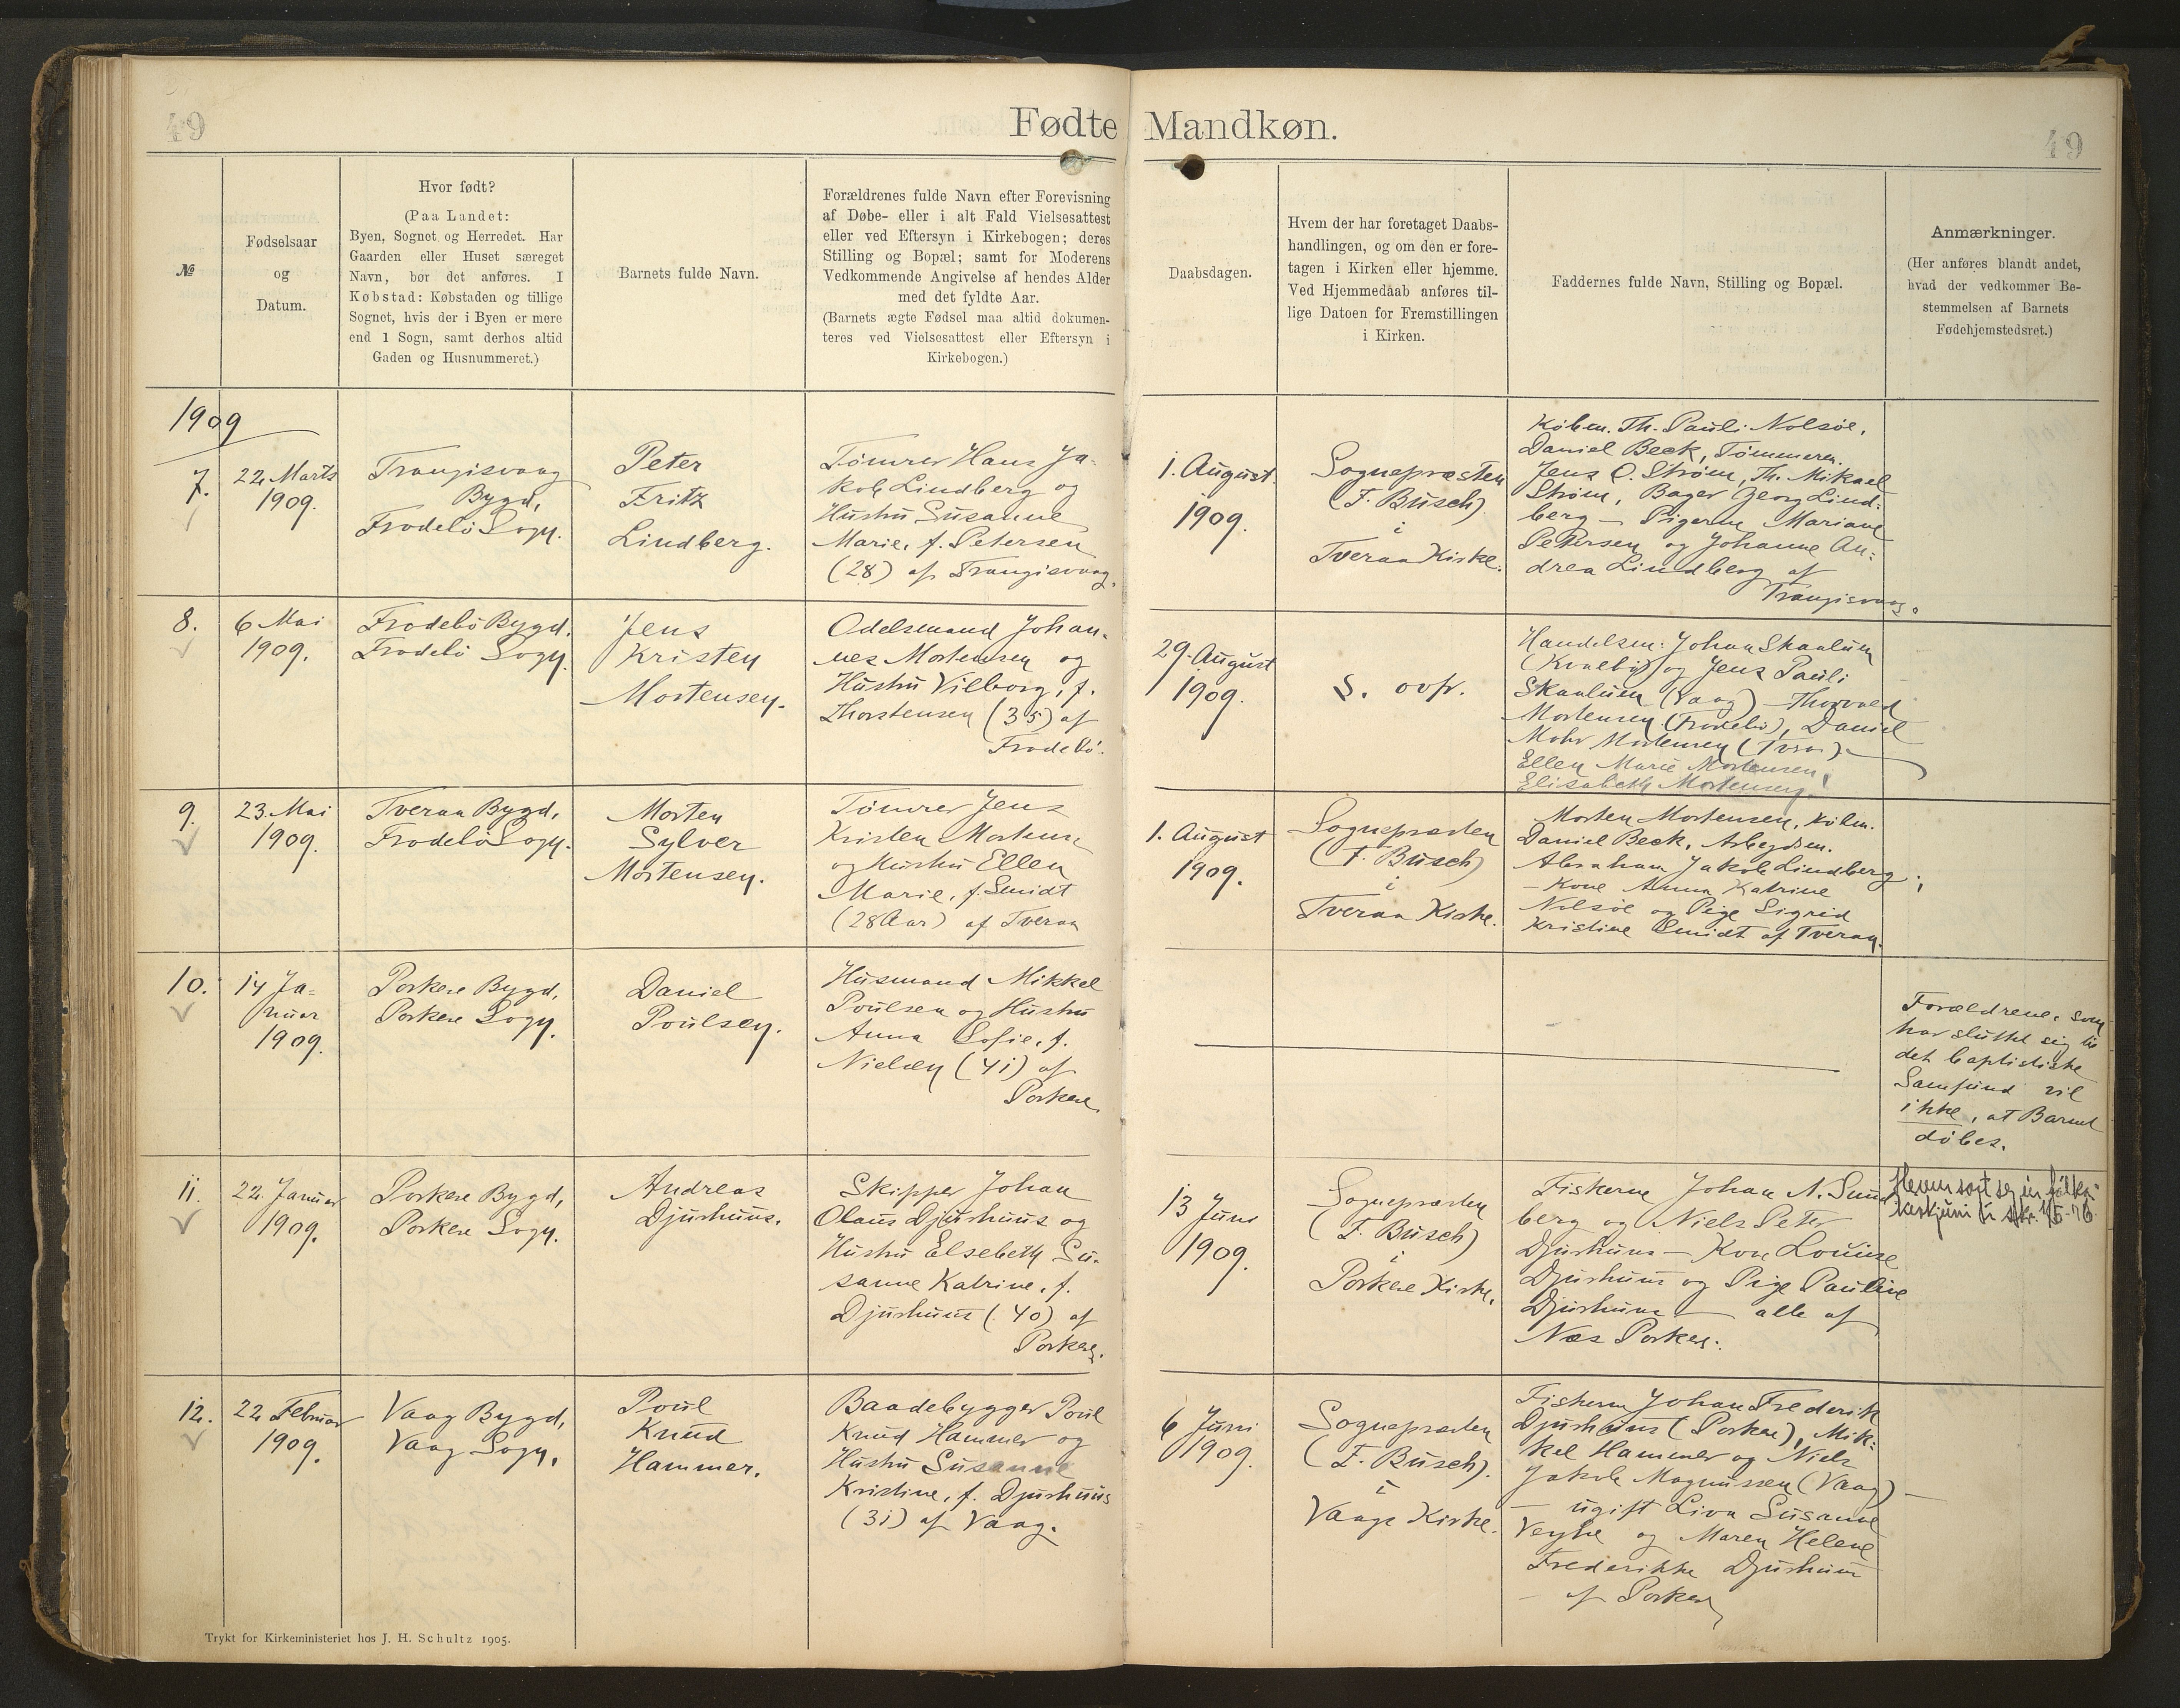 49
Fødte Mandkøn.
49
№
Fødselsaar
og
Datum.
Hvor født?
(Paa Landet:
Byen, Sognet og Herredet. Har
Gaarden eller Huset særeget
Navn, bør det anføres. I
Købstad: Købstaden og tillige
Sognet, hvis der i Byen er mere
end 1 Sogn, samt derhos altid
Gaden og Husnummeret.)
Barnets fulde Navn.
Forældrenes fulde Navn efter Forevisning
af Døbe- eller i alt Fald Vielsesattest
eller ved Eftersyn i Kirkebogen; deres
Stilling og Bopæl; samt for Moderens
Vedkommende Angivelse af hendes Alder
med det fyldte Aar.
(Barnets ægte Fødsel maa altid dokumen-
teres ved Vielsesattest eller Eftersyn i
Kirkebogen.)
Daabsdagen.
Hvem der har foretaget Daabs-
handlingen, og om den er fore-
tagen i Kirken eller hjemme.
Ved Hjemmedaab anføres til-
lige Datoen for Fremstillingen
i Kirken.
Faddernes fulde Navn, Stilling og Bopæl.
Anmærkninger.
(Her anføres blandt andet,
hvad der vedkommer Be-
stemmelsen af Barnets
Fødehjemstedsret.)
1909
7.
22 Marts
1909.
Trangisvaag
Bygd,
Frodebö Sogn.
Peter
Fritz
Lindberg.
Tömrer Hans Ja-
kob Lindberg og
Hustru Susanne
Marie, f. Petersen
(28) af Trangisvaag.
1. August
1909.
Sognepræsten
(F. Busch)
i
Tveraa Kirke.
Köbm. Th. Pauli Nolsöe,
Daniel Beck, Tömmerm.
Jens O. Ström, Th. Mikael
Ström, Bager Georg Lind-
berg - Pigerne Mariane
Petersen og Johanne An-
drea Lindberg af
Trangisvaag.
8.
6 Mai
1909.
Frodebö Bygd,
Frodebö Sogn.
Jens
Kristen
Mortensen.
Odelsmand Johan-
nes Mortensen og
Hustru Vilborg, f.
Thorstensen (35) af
Frodebö.
29. August
1909.
S. ovfr.
Handelsm. Johan Skaalum
(Kvalbö) og Jens Pauli
Skaalum (Vaag) - Thorvald
Mortensen (Frodebö), Daniel
Mohr Mortensen (Tveraa) -
Ellen Marie Mortensen,
Elisabeth Mortensen.
9.
23. Mai
1909.
Tveraa Bygd,
Frodebö Sogn.
Morten
Sylver
Mortensen.
Tömrer Jens
Kristen Mortensen
og Hustru Ellen
Marie, f. Smidt
(28 Aar) af Tveraa
1. August
1909.
Sognepræsten
(F. Busch)
i
Tveraa Kirke.
Morten Mortensen, Köbm.
Daniel Beck, Arbejdsm.
Abraham Jakob Lindberg;
- Kone Anna Katrine
Nolsöe og Pige Sigrid
Kristine Smidt af Tveraa.
10.
14 Ja-
nuar
1909.
Porkere Bygd,
Porkere Sogn.
Daniel
Poulsen.
Husmand Mikkel
Poulsen og Hustru
Anna Sofie, f.
Nielsen (41) af
Porkere.
Forældrene, som
har sluttet sig til
det baptistiske
Samfund vil
ikke, at Barnet
döbes.
11.
22. Januar
1909.
Porkere Bygd,
Porkere Sogn.
Andreas
Djurhuus.
Skipper Johan
Olaus Djurhuus og
Hustru Elsebeth Su-
sanne Katrine, f.
Djurhuus (40) af
Porkere.
13 Juni
1909.
Sognepræsten
(F. Busch)
i
Porkere Kirke.
Fiskerne Johan N. Sund-
berg og Niels Peter
Djurhuus - Kone Louise
Djurhuus og Pige Pauline
Djurhuus - alle af
Nes Porkere.
Hevur sagt seg úr fólka-
kirkjuni
12.
22 Februar
1909.
Vaag Bygd,
Vaag Sogn.
Poul
Knud
Hammer.
Baadebygger Poul
Knud Hammer og
Hustru Susanne
Kristine, f. Djurhuus
(31) af Vaag.
6 Juni
1909.
Sognepræsten
(F. Busch).
i
Vaags Kirke.
Fiskerne Johan Frederik
Djurhuus (Porkere), Mik-
kel Hammer og Niels
Jakob Magnussen (Vaag) -
- ugift Liva Susanne
Veyhe og Maren Helene
Frederikke Djurhuus
- af Porkere
Trykt for Kirkeministeriet hos J. H. Schultz 1905.